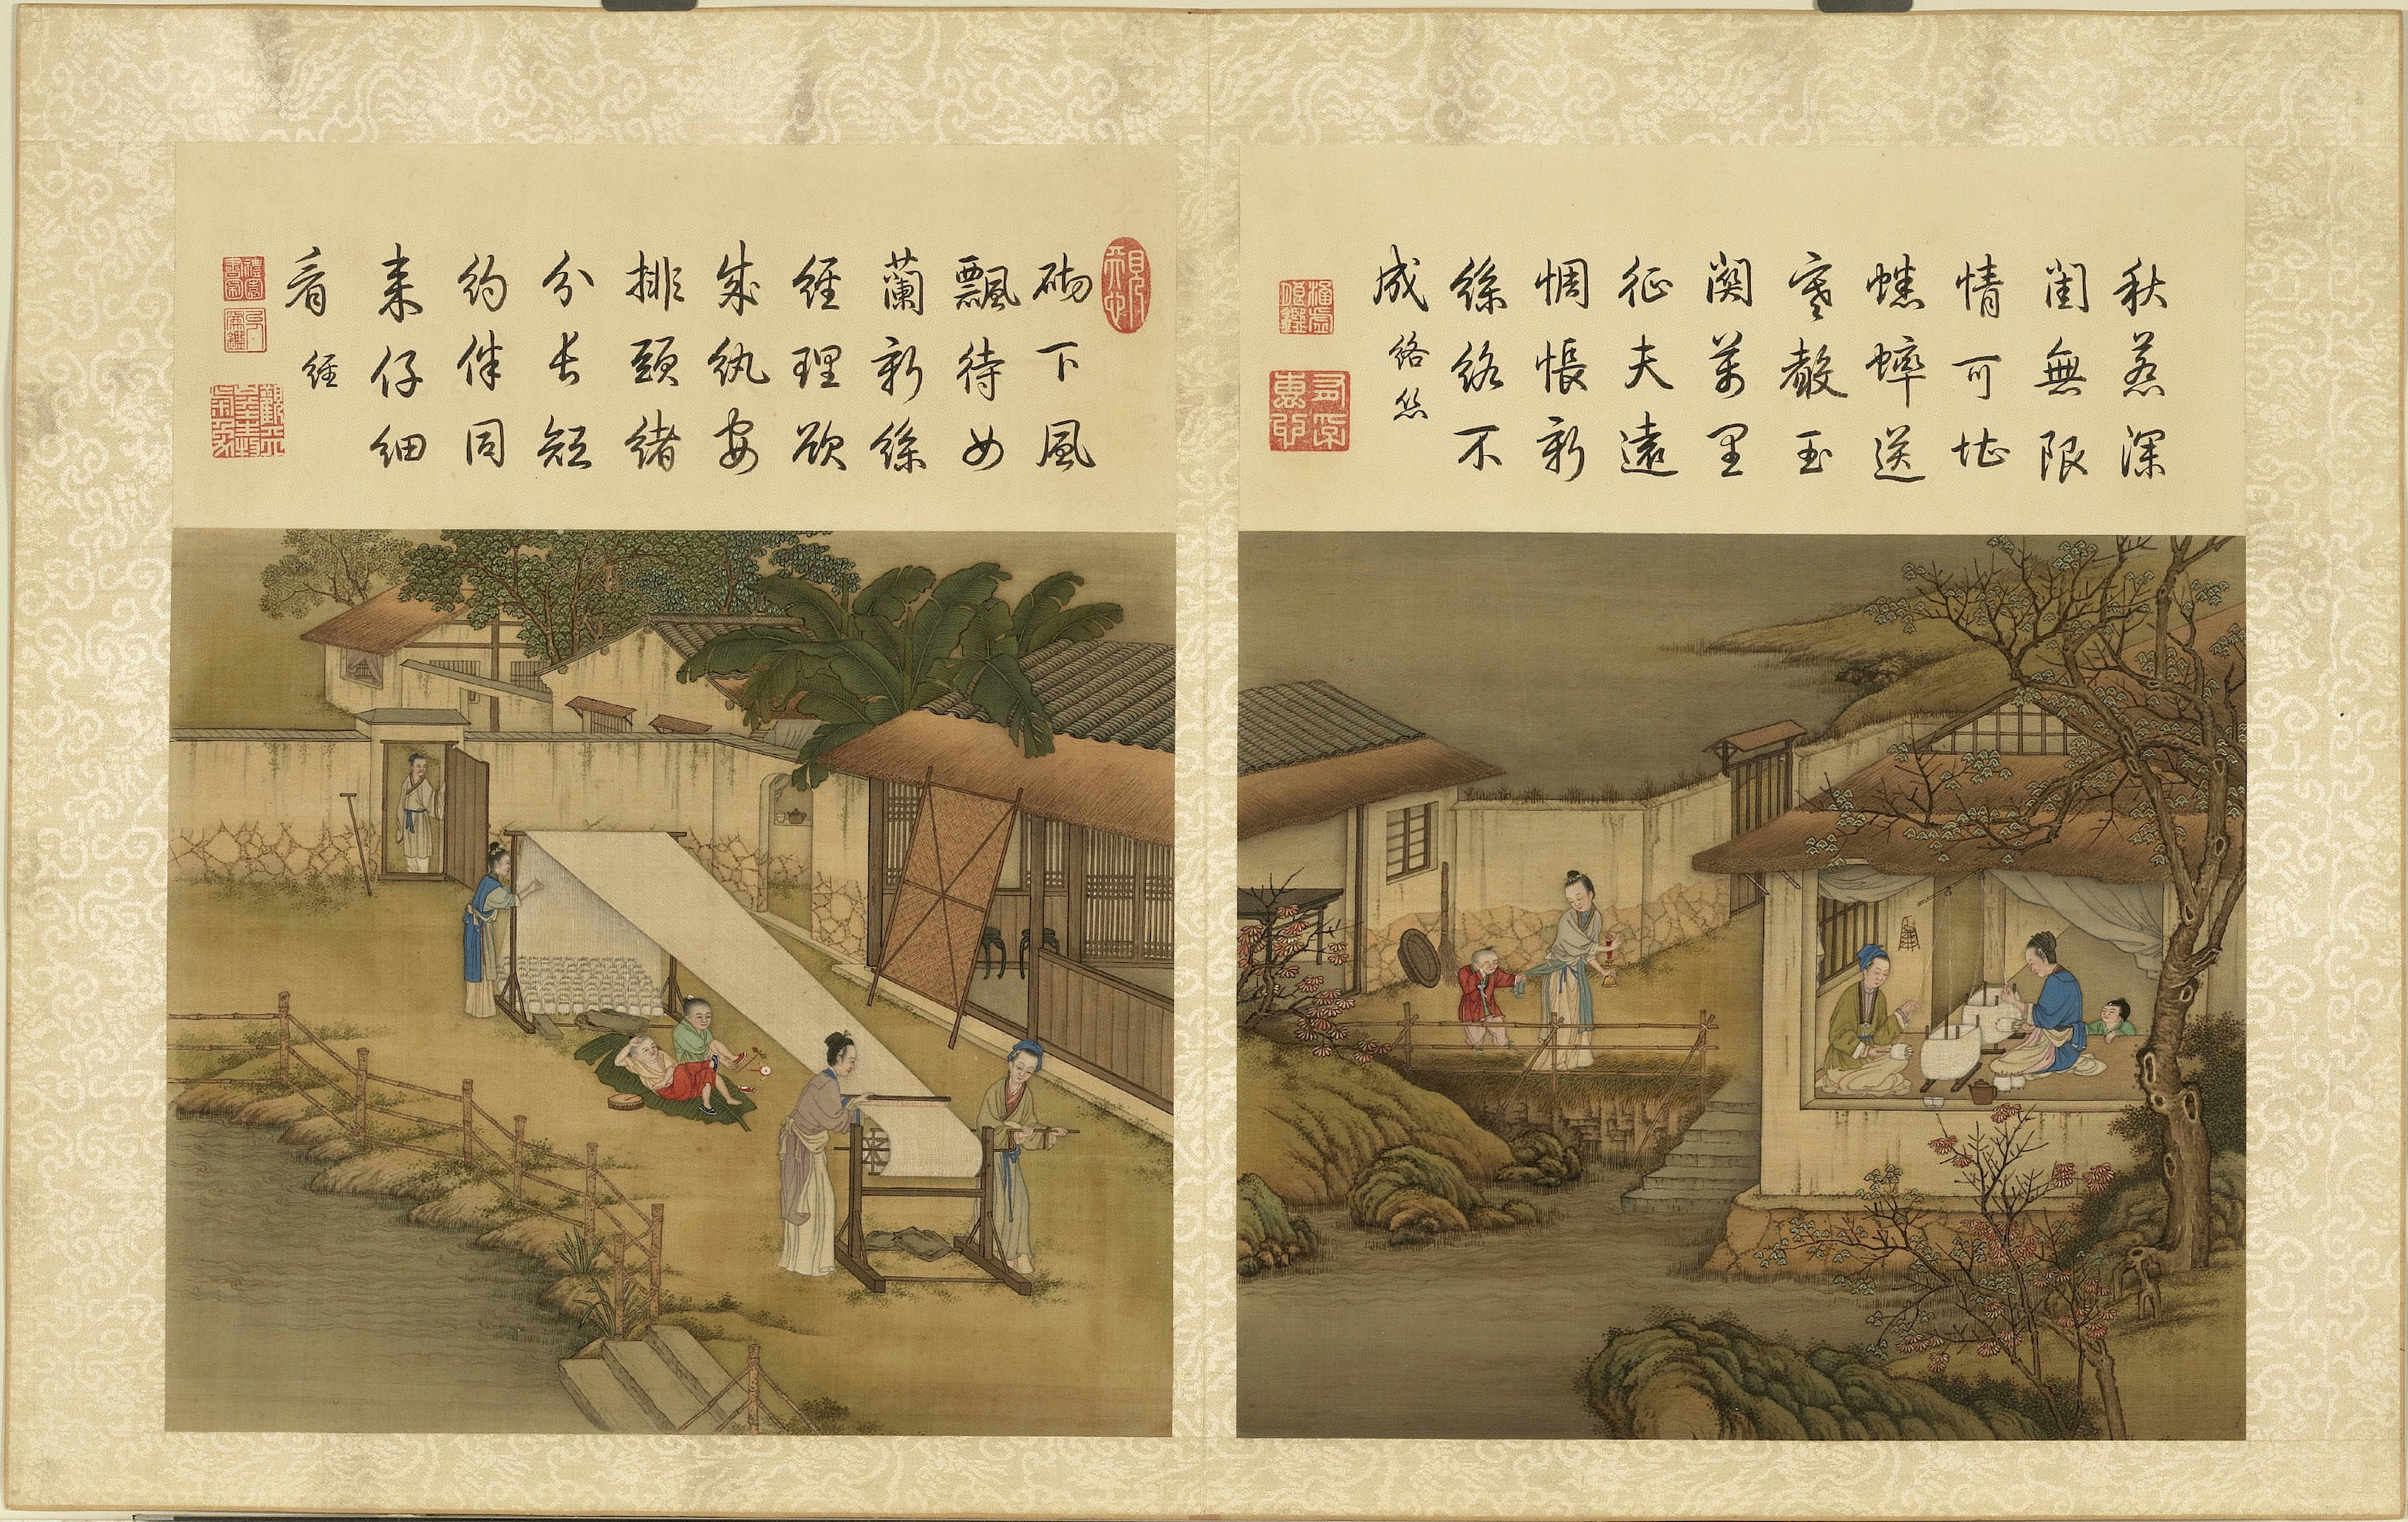 秋惹深
閨無限
情可堪
蟋蟀送
寒聲玉
關萬里
征夫遠
惆悵新
絲絡不
成
絡絲
砌下風
飄待女
蘭新絲
經理欲
成紈安
排頭緒
分長短
約伴同
來仔細
看
經